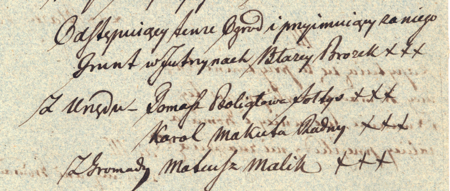 Odstępuiący tenze Ogrod i przyimuiący za niego
Grunt w Jutrynach Błazey Brozek +++
Z Urzędu – Tomasz Boligłowa Sołtys +++
Karol Makuła Radny +++
Z Gromady Mateusz Malik +++